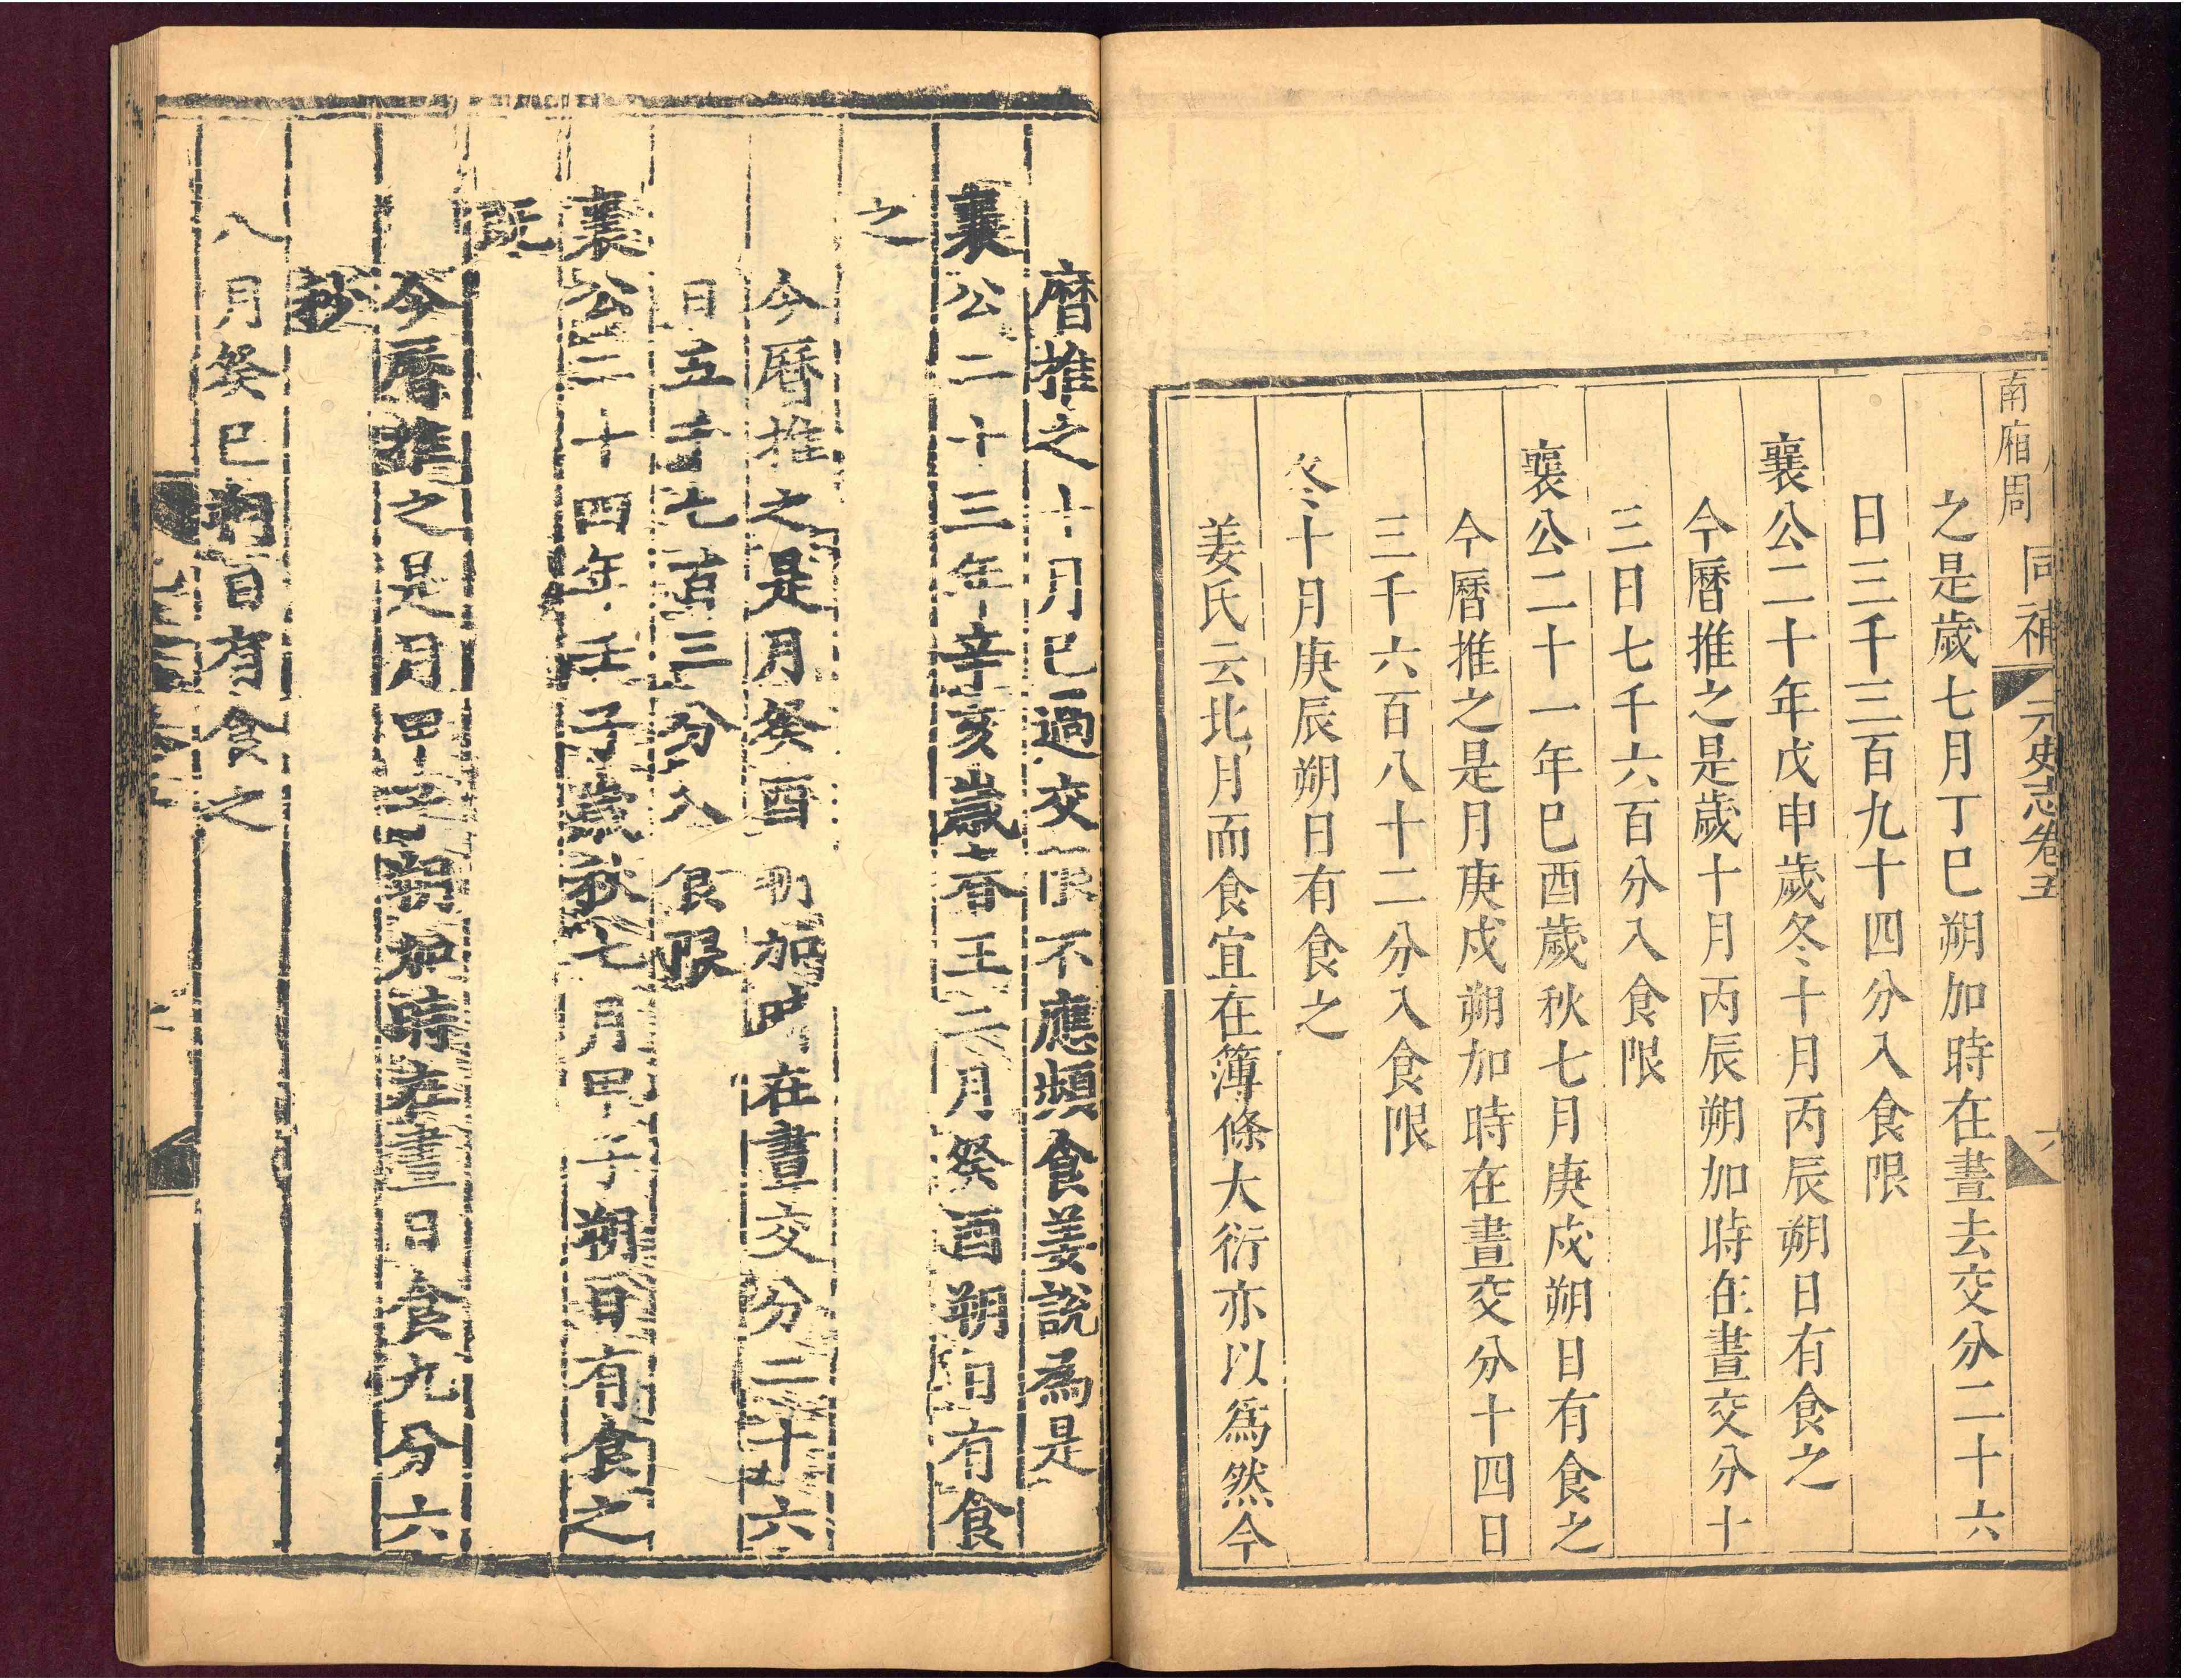 南廂周 同補 元史志卷五 六
之是歲七月丁巳朔加時在晝去交分二十六
日三千三百九十四分入食限
襄公二十年戊申歲冬十月丙辰朔日有食之
今曆推之是歲十月丙辰朔加時在晝交分十
三日七千六百分入食限
襄公二十一年巳酉歲秋七月庚戌朔日有食之
今曆推之是月庚戌朔加時在晝交分十四日
三千六百八十二分入食限
冬十月庚辰朔日有食之
姜氏云比月而食宜在簿條大衍亦以爲然今
曆推之十月已過交限不應頻食姜說為是
襄公二十三年辛亥歲春王二月癸酉朔日有食
之
今曆推之是月癸酉朔加時在晝交分二十六
日五千七百三分入食限
襄公二十四年壬子歲秋七月甲子朔日有食之
既
今曆推之是月甲子朔加時在晝日食九分六
秒
八月癸巳朔日有食之